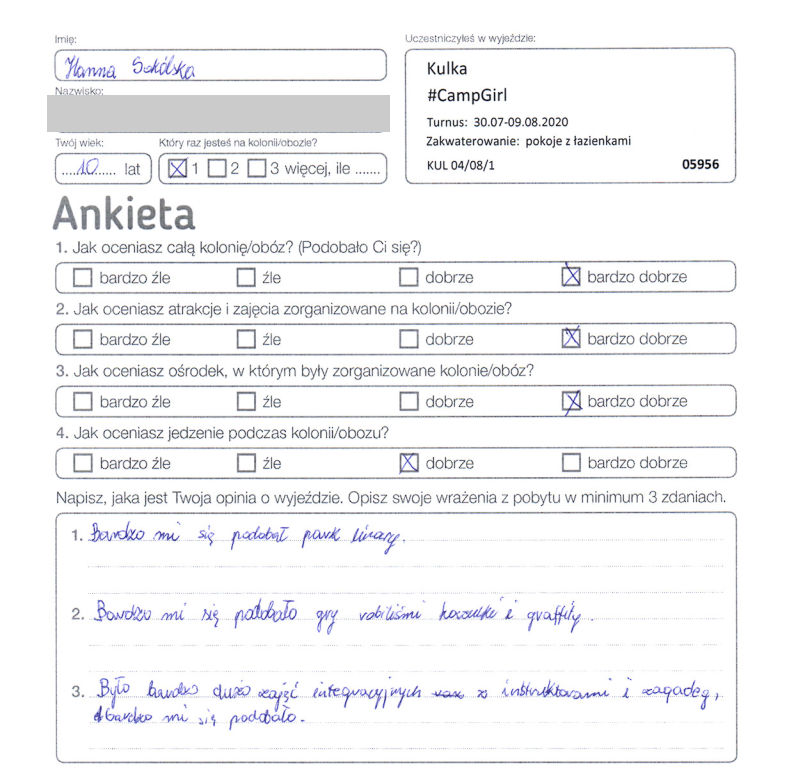 Imię:
Hanna Sokólska
Nazwisko:
Twój wiek:
Który raz jesteś na kolonii/obozie?
....10..... lat
1 2 3 więcej, ile .......
Uczestniczyłeś w wyjeździe:
Kulka
#CampGirl
Turnus: 30.07-09.08.2020
Zakwaterowanie: pokoje z łazienkami
KUL 04/08/1
05956
Ankieta
1. Jak oceniasz całą kolonię/obóz? (Podobało Ci się?)
bardzo źle źle dobrze bardzo dobrze
2. Jak oceniasz atrakcje i zajęcia zorganizowane na kolonii/obozie?
bardzo źle źle dobrze bardzo dobrze
3. Jak oceniasz ośrodek, w którym były zorganizowane kolonie/obóz?
bardzo źle źle dobrze bardzo dobrze
4. Jak oceniasz jedzenie podczas kolonii/obozu?
bardzo źle źle dobrze bardzo dobrze
Napisz, jaka jest Twoja opinia o wyjeździe. Opisz swoje wrażenia z pobytu w minimum 3 zdaniach.
1. Bardzo mi się podobał park linowy.
2. Bardzo mi się podobało gry robiliśmi koszulki i graffity.
3. Było bardzo dużo zajęć integracyjnych z instruktorami i zagadeg,
bardzo mi się podobało.